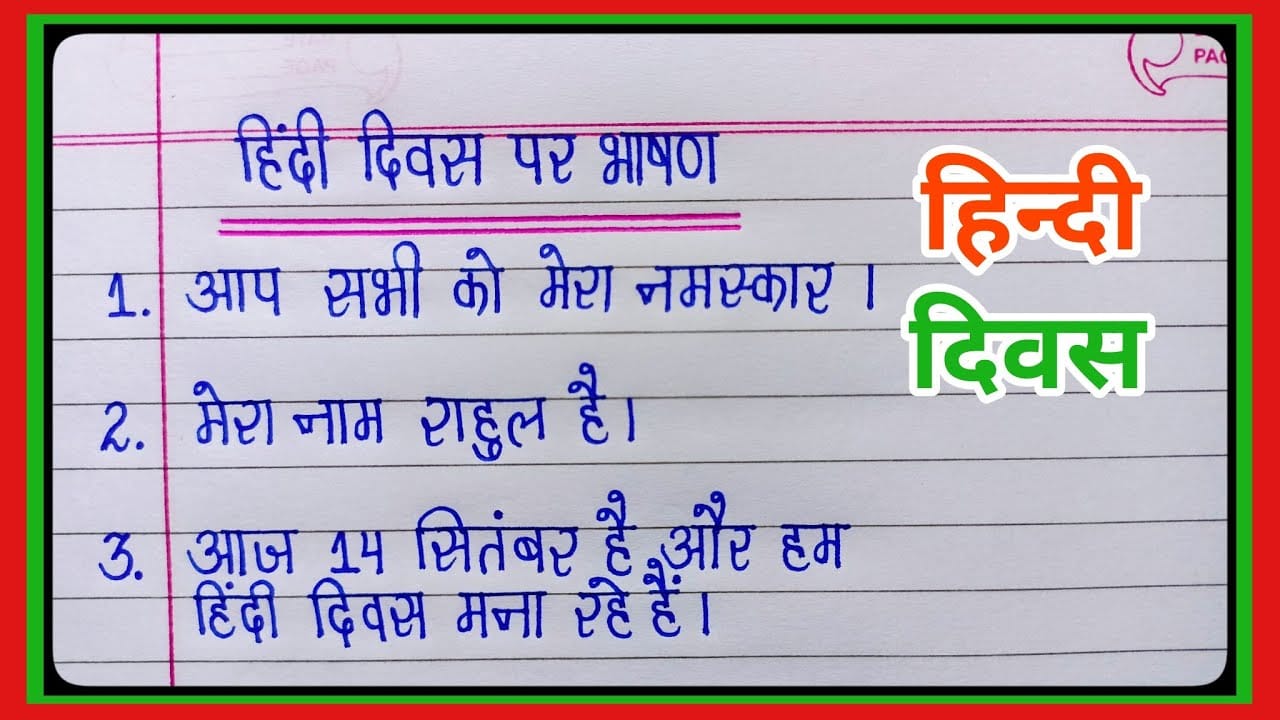 हिंदी दिवस पर भाषण
1. आप सभी को मेरा नमस्कार ।
2. मेरा नाम राहुल है।
3. आज 14 सितंबर है और हम
हिंदी दिवस मना रहे हैं।
हिन्दी
दिवस